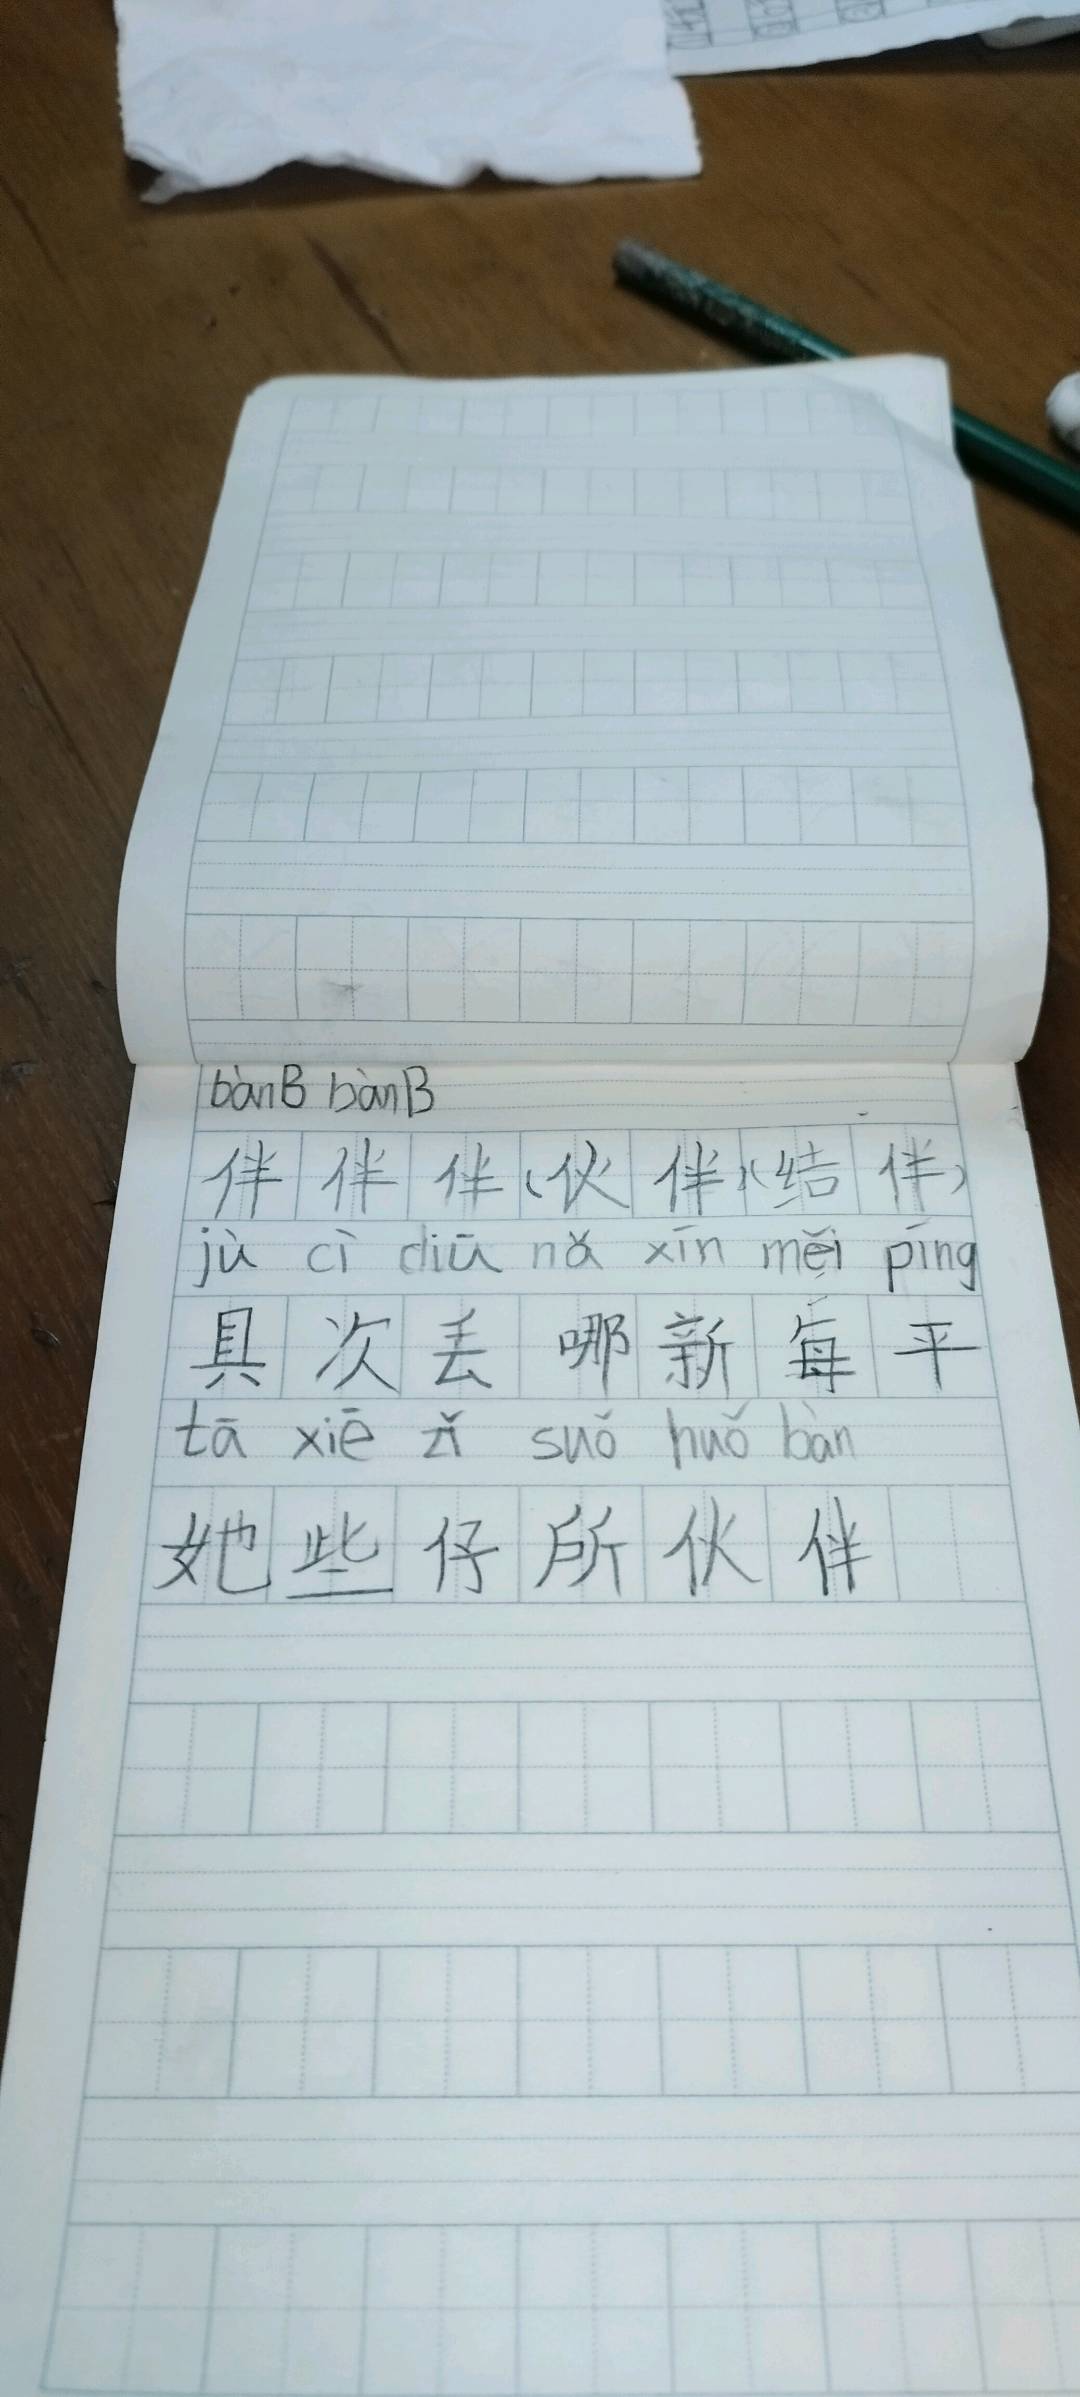 bànB bànB
伴伴伴(伙伴)(结伴)
jù cì diū nǎ xīn měi píng
具次丢哪新每平
tā xiē zǐ suǒ huǒ bàn
她些仔所伙伴